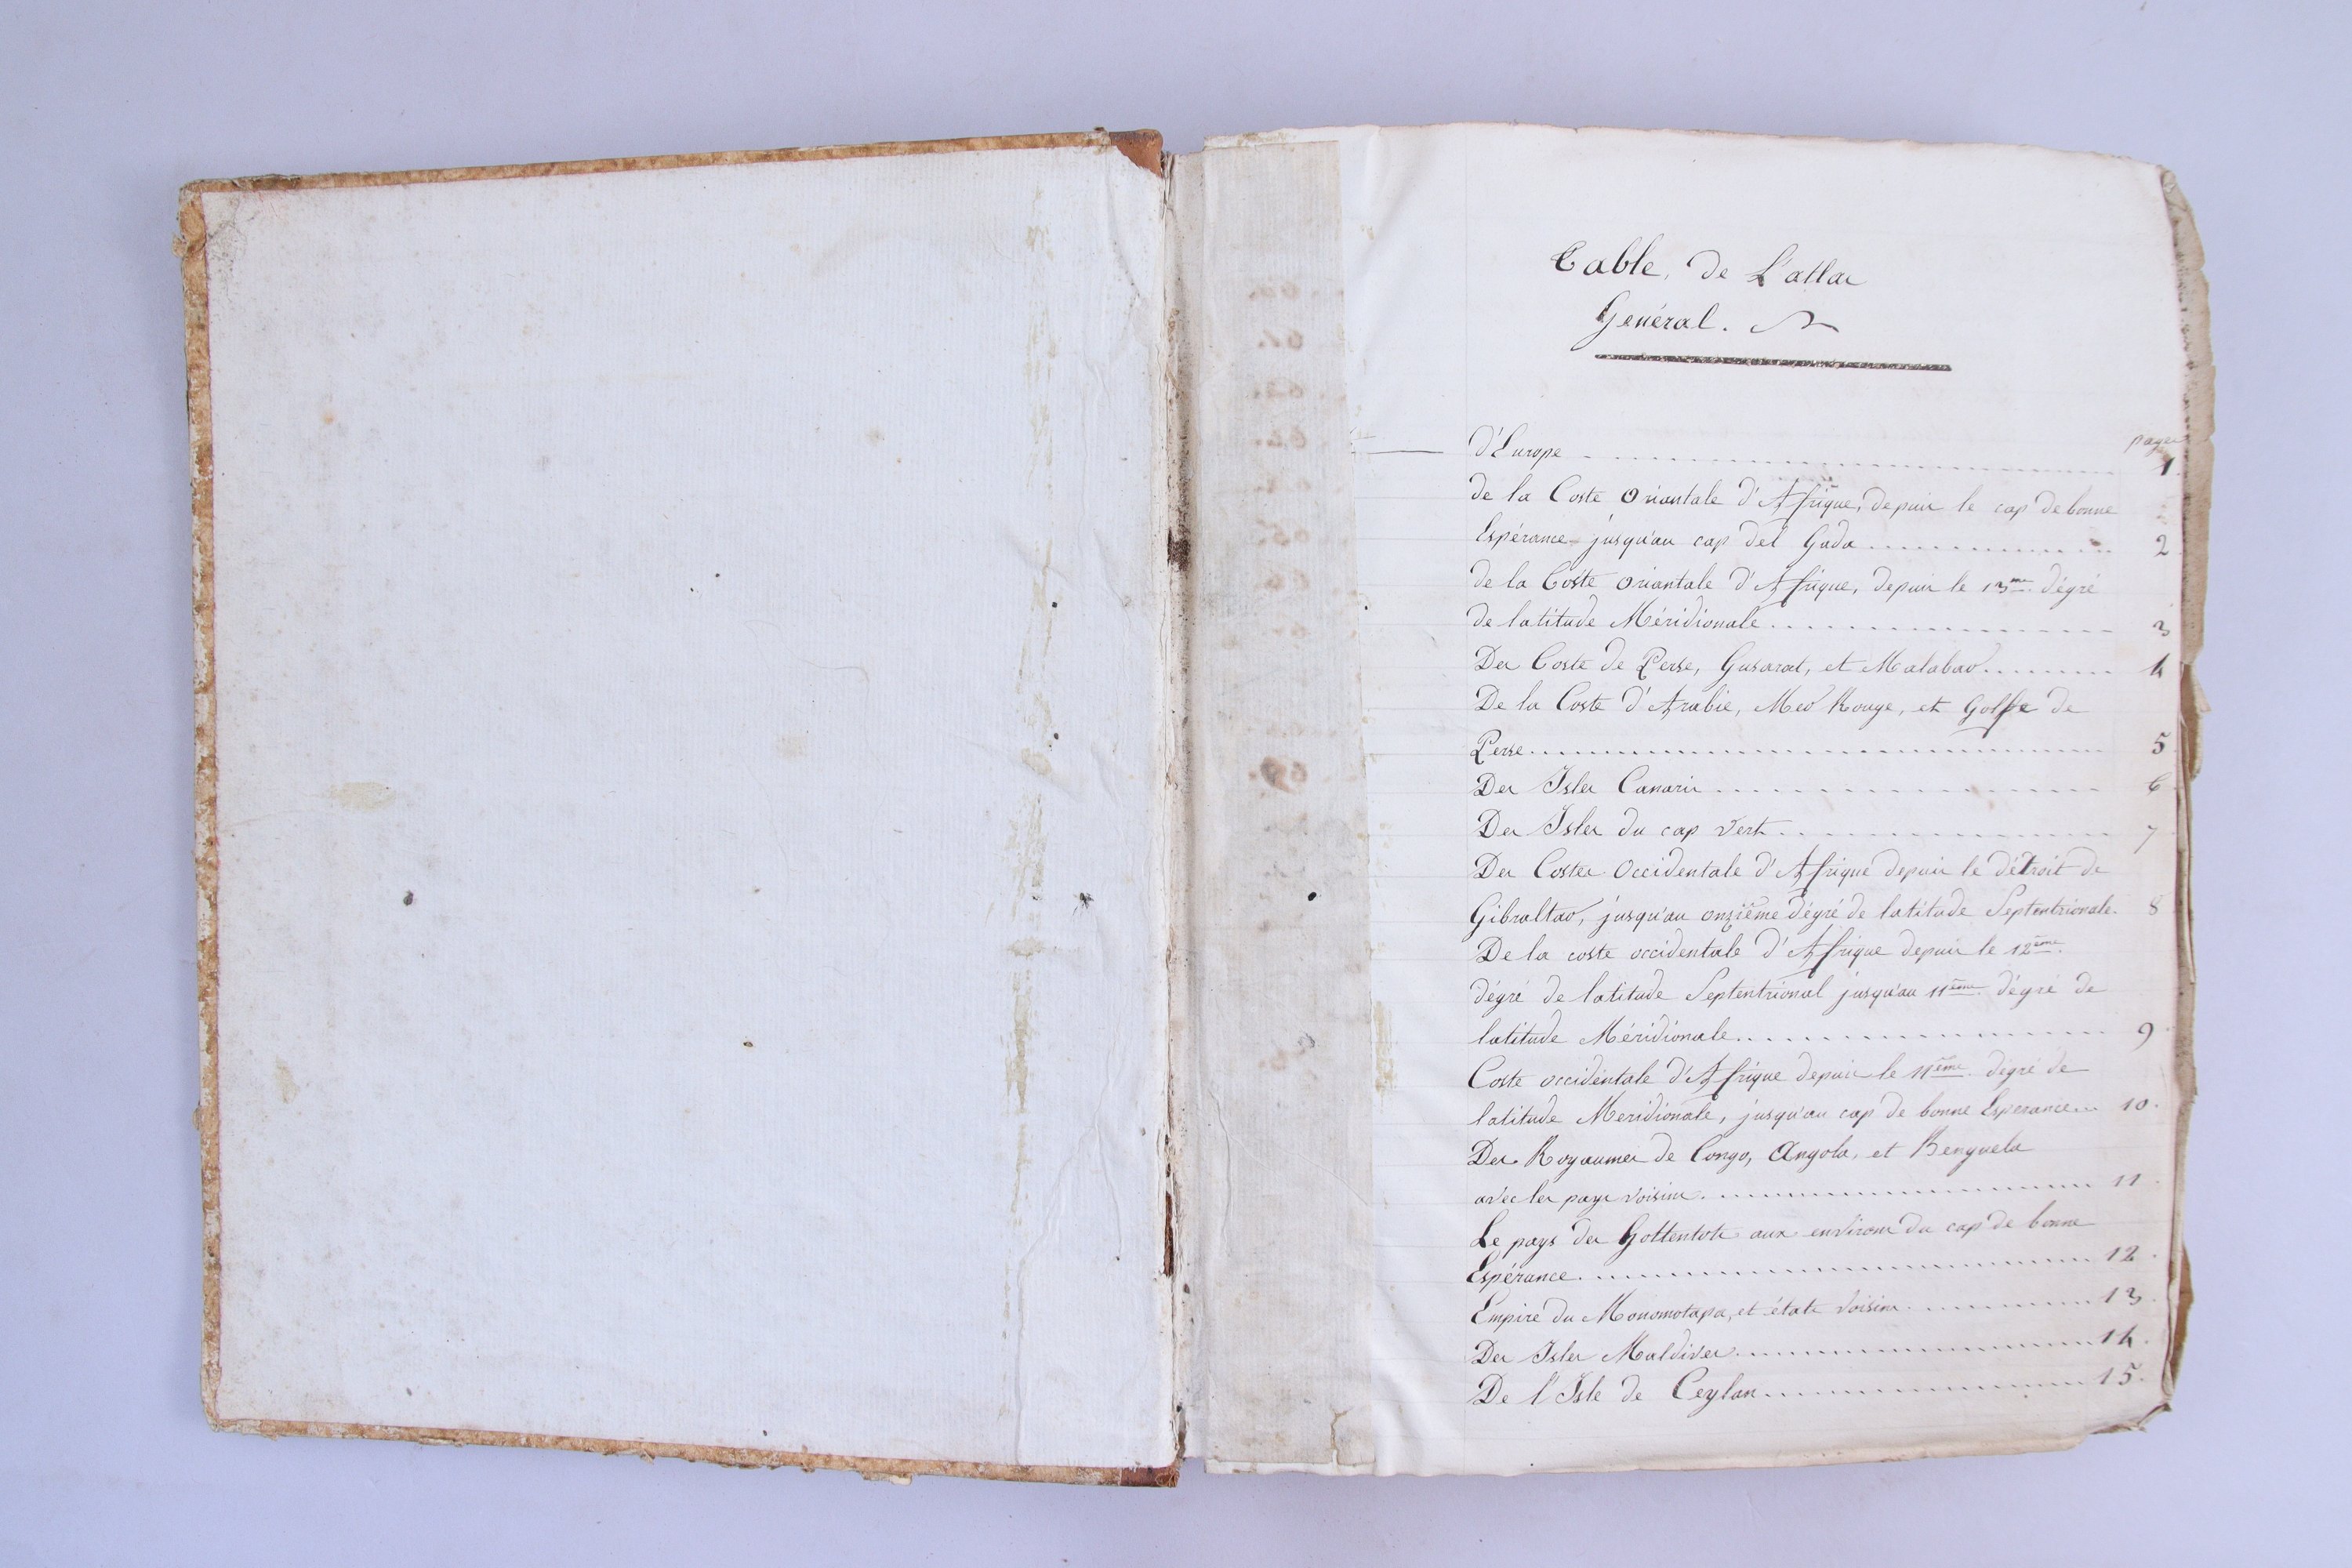 Table, de L'atlas
Genéral.
pages
d'Europe 1.
de la Coste Oriantale d'Affrique, depuis le cap de bonne
Espérance jusqu'au cap del Gada 2
de la Coste oriantale d'Affrique, depuis le 13me dégré
de latitude Méridionale 3
Des Coste de Perse, Gusarat, et Malabar 4
De la Coste d'Arabie, Mer Rouge, et Golfe de
Perse 5
Des Isles Canaris 6
Des Isles du cap Vert 7
Des Costes Occidentale d'Affrique depuis le détroit de
Gibraltar, jusqu'au onziême dégré de latitude Septentrionale. 8
De la coste occidentale d'Affrique depuis le 12ême
dégré de latitude Septentrional jusqu'au 11ême dégré de
latitude Méridionale 9
Coste occidentale d'Affrique depuis le 11ême dégré de
latitude Meridionale, jusqu'au cap de bonne Esperance 10.
Des Royaumes de Congo, Angola, et Benguela
avec les pays voisins 11
Le pays des Hottentots aux environs du cap de bonne
Espérance 12
Empire du Monomotapa, et états Voisins 13
Des Isles Maldives 14.
De l'Isle de Ceylan 15.
62.
65.
69.